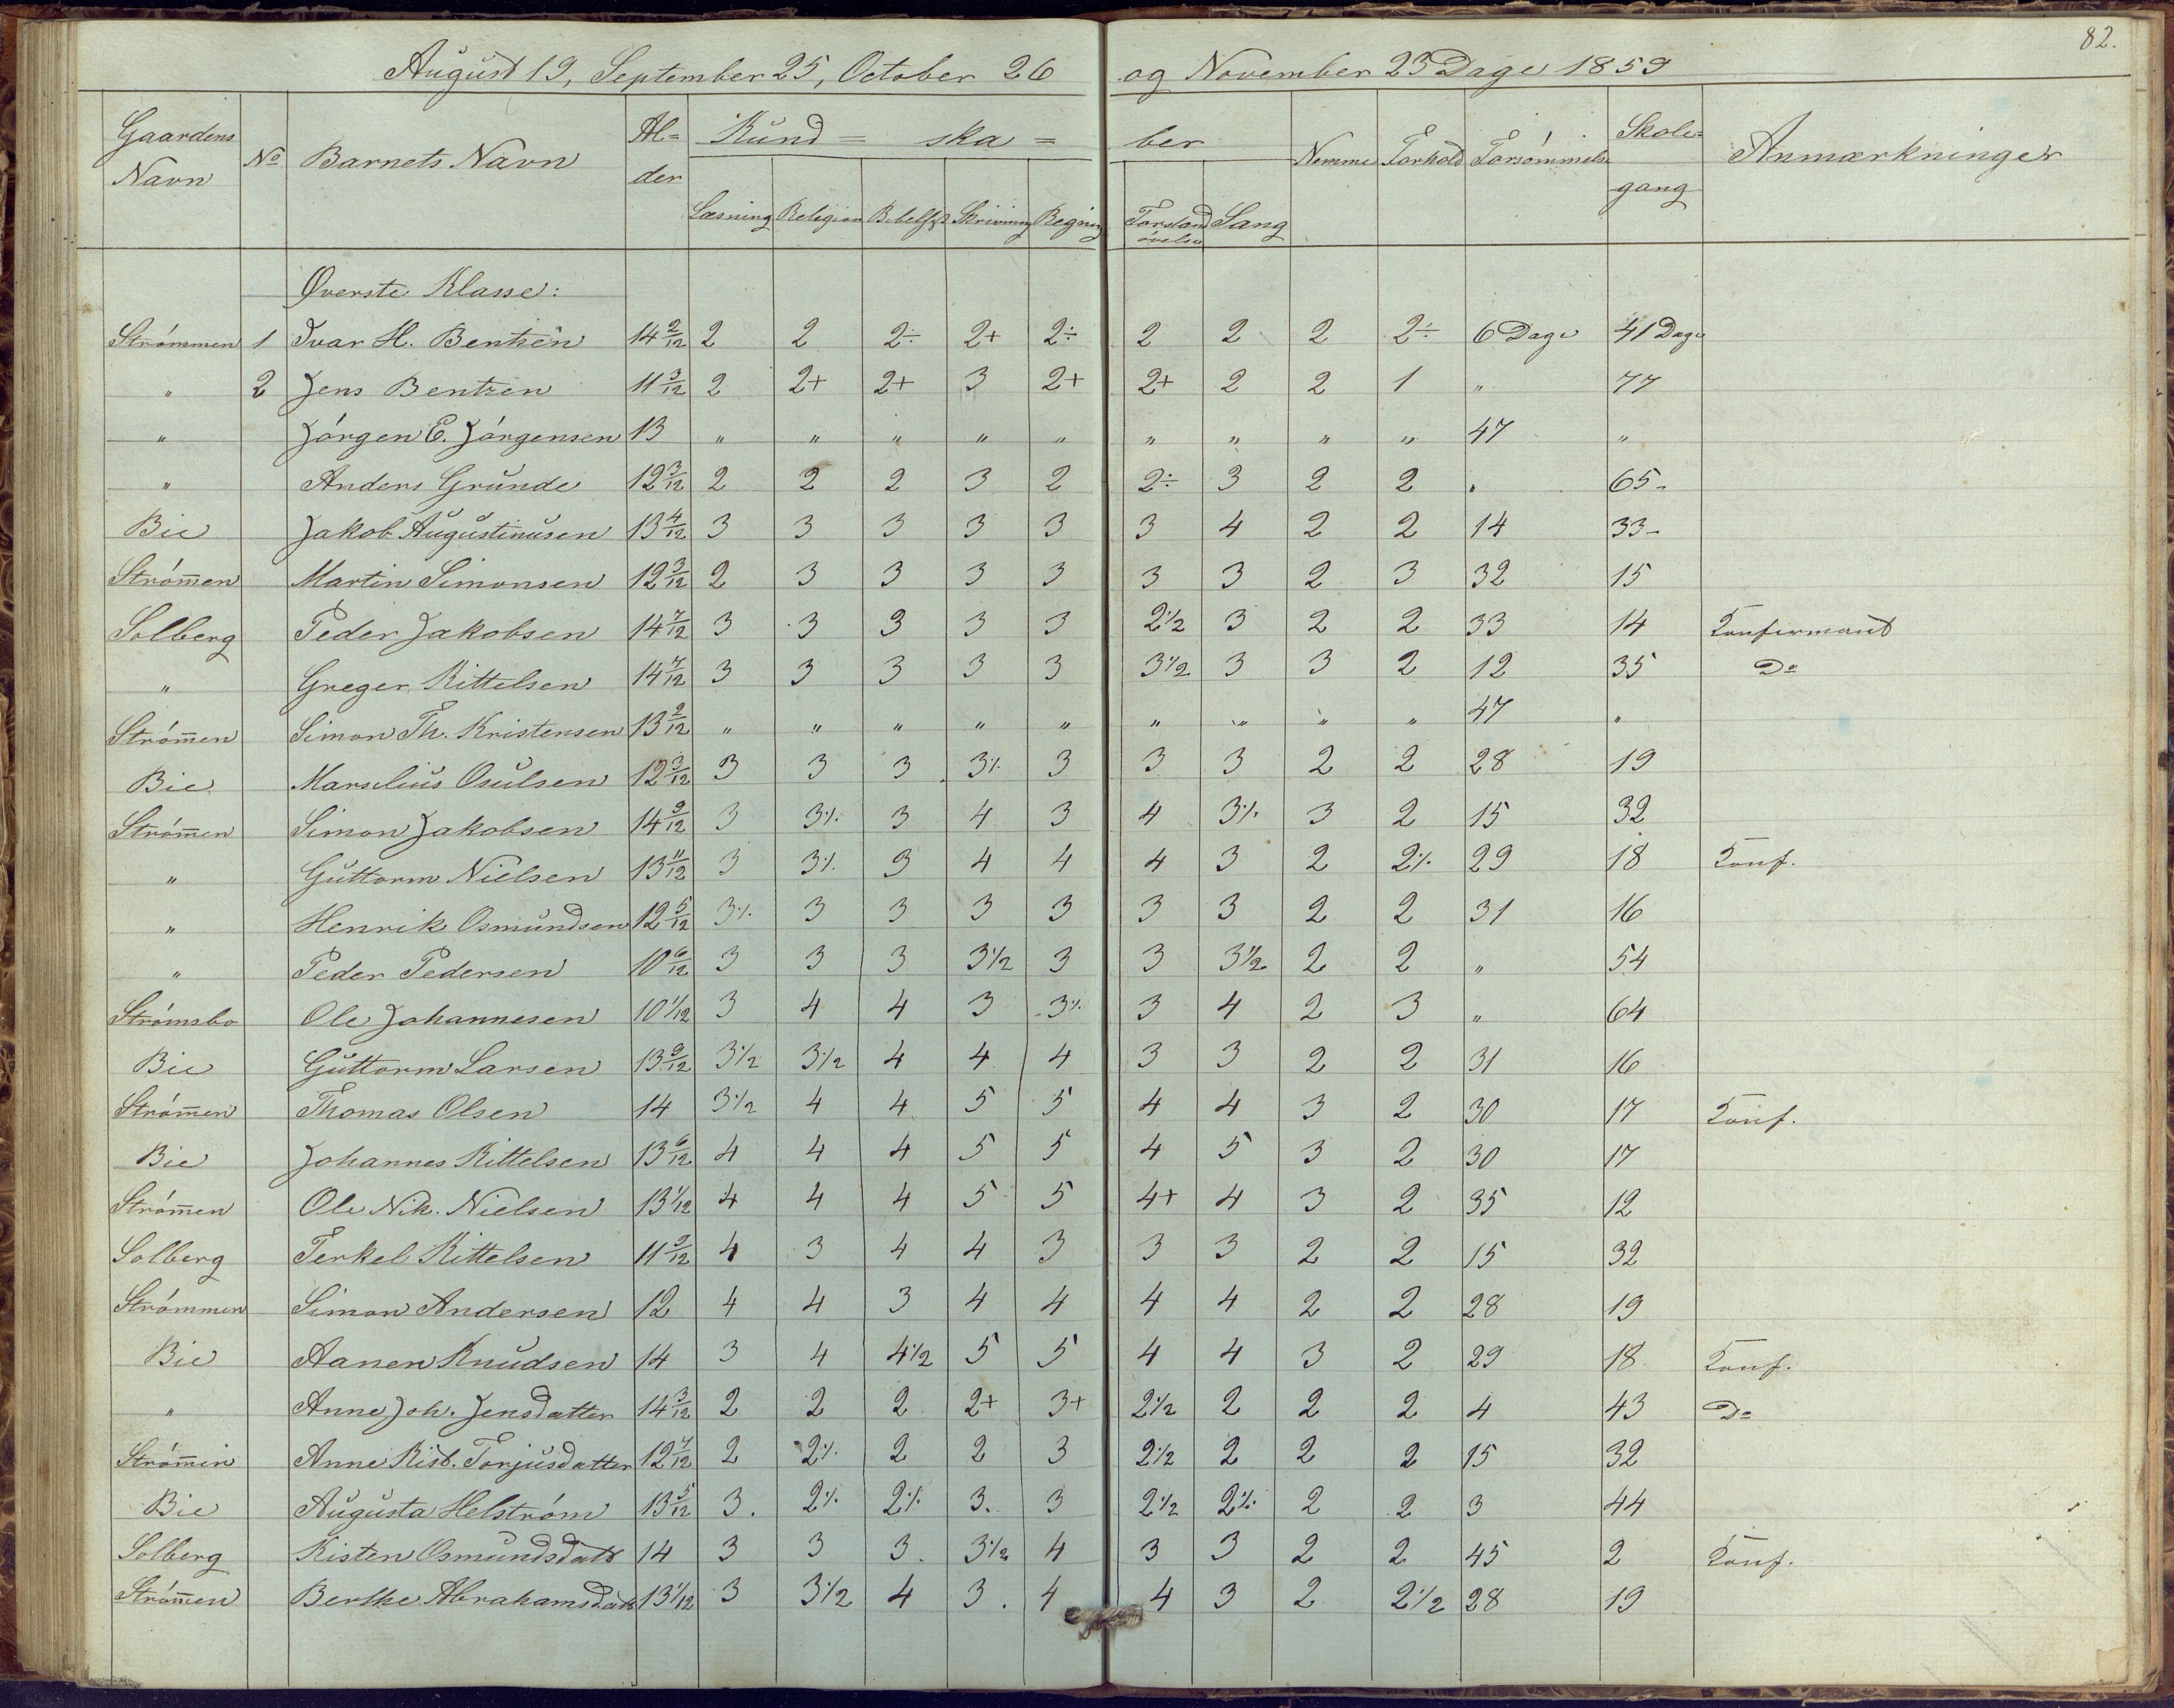 82.
August 19, September 25, October 26 og November 23 Dage 1859
Gaardens Navn No Barnets Navn Al=der Kund= ska= ber Nemme Forhold Forsømmelse Skole=gang Anmærkninger
Læsning Religion Bibelhist Skrivning Regning Forstandøvelse Sang
Øverste Klasse:
Strømmen 1 Ivar H. Bentzen 14 2/12 2 2 2÷ 2+ 2÷ 2 2 2 2÷ 6 Dage 41 Dage
" 2 Jens Bentzen 11 3/12 2 2+ 2+ 3 2+ 2+ 2 2 1 " 77
" Jórgen E. Jórgensen 13 " " " " " " " " " 47 "
" Anders Grunde 12 3/12 2 2 2 3 2 2÷ 3 2 2 " 65-
Bie Jakob Augustinusen 13 4/12 3 3 3 3 3 3 4 2 2 14 33-
Strómen Martin Simonsen 12 3/12 2 3 3 3 3 3 3 2 3 32 15
Solberg Peder Jakobsen 14 7/12 3 3 3 3 3 2 1/2 3 2 2 33 14 Konfirmand
" Greger Kittelsen 14 7/12 3 3 3 3 3 3 1/2 3 3 2 12 35 Do
Strómen Simon Th. Kristensen 13 2/12 " " " " " " " " " 47 "
Bie Marselius Osulsen 12 3/12 3 3 3 3÷ 3 3 3 2 2 28 19
Strómen Simon Jakobsen 14 9/12 3 3÷ 3 4 3 4 3÷ 3 2 15 32
" Guttorm Nielsen 13 11/12 3 3÷ 3 4 4 4 3 2 2÷ 29 18 Konf.
" Henrik Osmundsen 12 5/12 3÷ 3 3 3 3 3 3 2 2 31 16
" Peder Pedersen 10 6/12 3 3 3 3 1/2 3 3 3 1/2 2 2 " 54
Strómsbo Ole Johannesen 10 1/12 3 4 4 3 3÷ 3 4 2 3 " 64
Bie Guttorm Larsen 13 9/12 3 1/2 3 1/2 4 4 4 3 3 2 2 31 16
Strómen Thomas Olsen 14 3 1/2 4 4 5 5 4 4 3 2 30 17 Konf.
Bie Johannes Kittelsen 13 6/12 4 4 4 5 5 4 5 3 2 30 17
Strómen Ole Nik. Nielsen 13 1/12 4 4 4 5 5 4+ 4 3 2 35 12
Solberg Terkel Kittelsen 11 9/12 4 3 4 4 3 3 3 2 2 15 32
Strómmen Simon Andersen 12 4 4 3 4 4 4 4 2 2 28 19
Bie Aanen Knudsen 14 3 4 4 1/2 5 5 4 4 3 2 29 18 Konf.
" Anne Joh. Jensdatter 14 3/12 2 2 2 2+ 3+ 2 1/2 2 2 2 4 43 Do
Strómen Anne Kist. Torjusdatter 12 7/12 2 2÷ 2 2 3 2 1/2 2 2 2 15 32
Bie Augusta Helström 13 5/12 3. 2÷ 2÷ 3. 3 2 1/2 2÷ 2 2 3 44
Solberg Kisten Osmundsdatt 14 3 3 3. 3 1/2 4 3 3 2 2 45 2 Konf.
Strómen Berthe Abrahamsdatt 13 1/12 3 3 1/2 4 3. 4 4 3 2 2 1/2 28 19